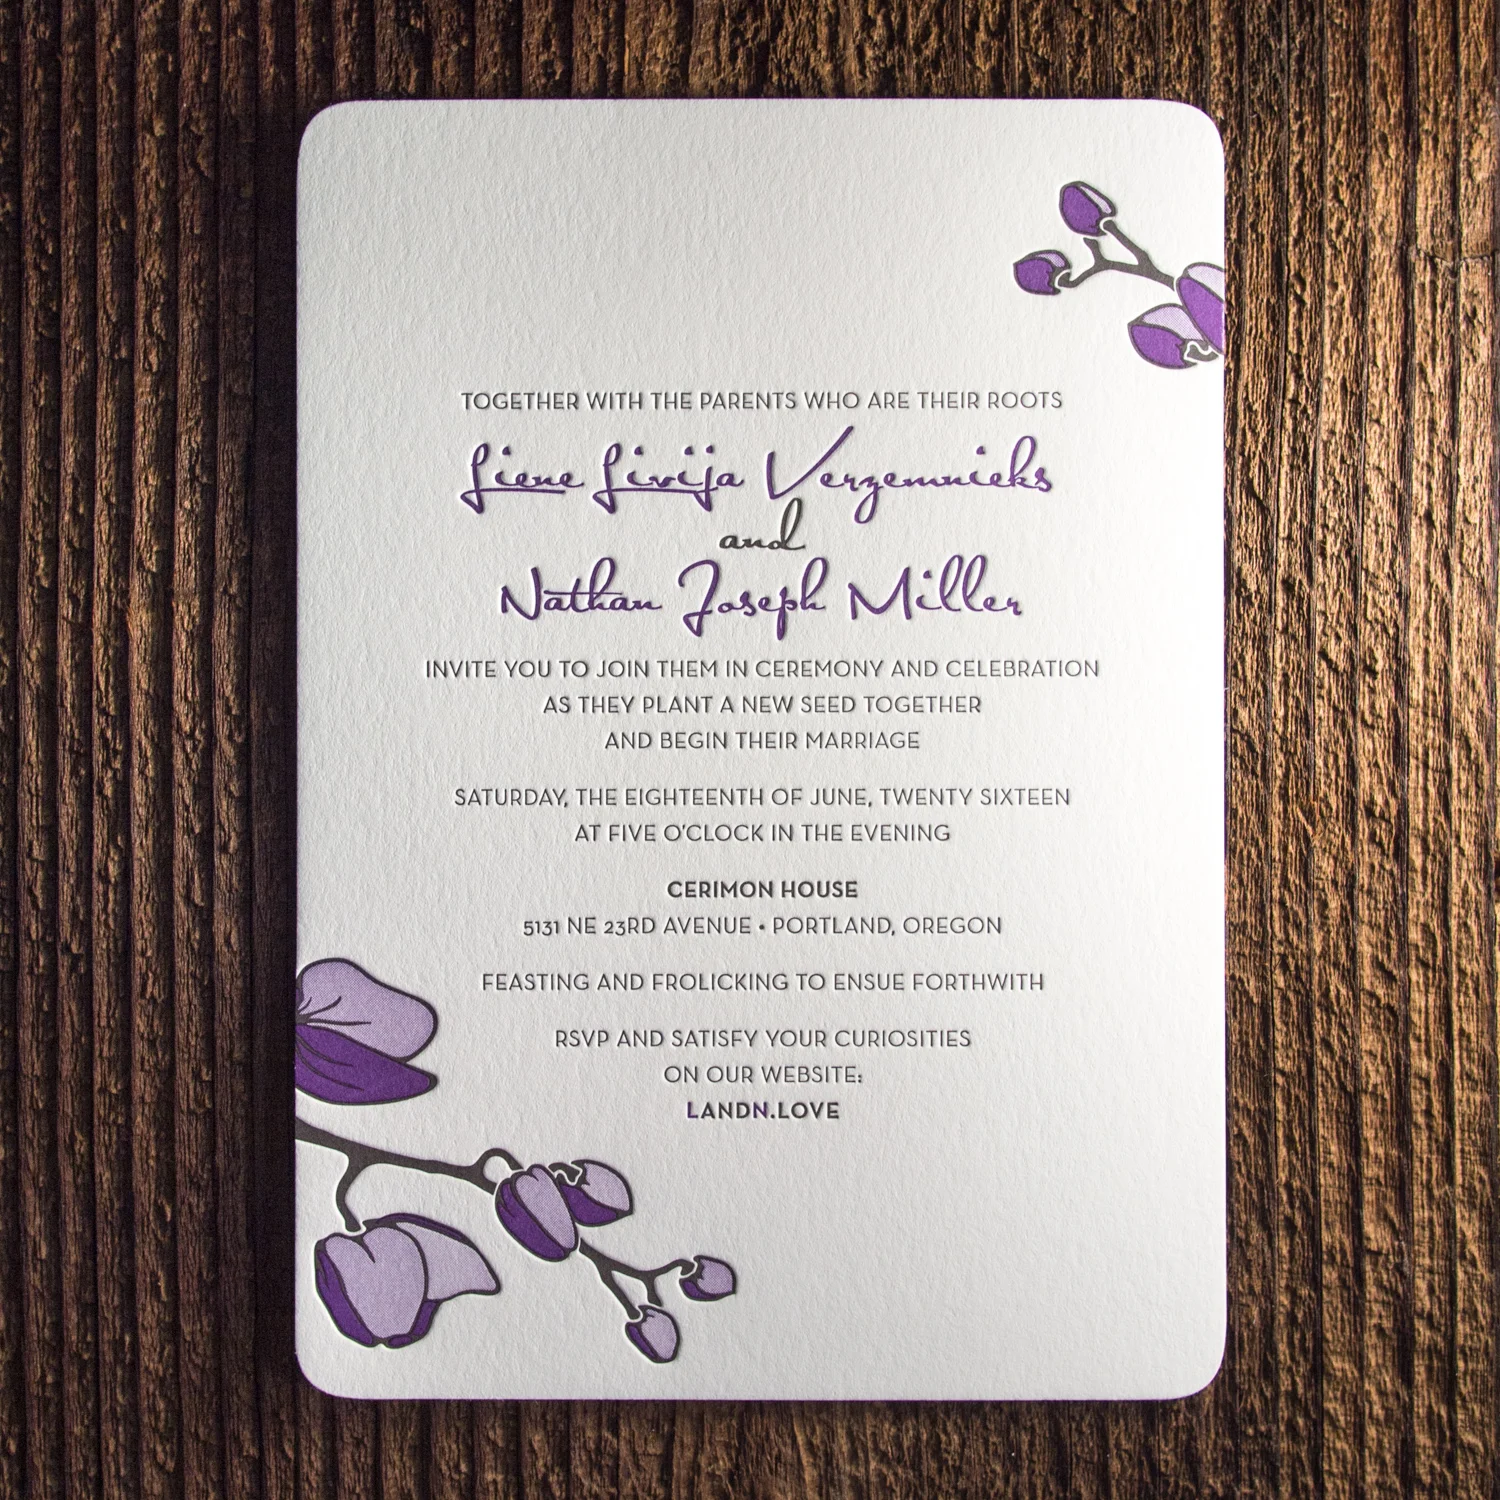 TOGETHER WITH THE PARENTS WHO ARE THEIR ROOTS
Liene Livija Verzemnieks
and
Nathan Joseph Miller
INVITE YOU TO JOIN THEM IN CEREMONY AND CELEBRATION
AS THEY PLANT A NEW SEED TOGETHER
AND BEGIN THEIR MARRIAGE
SATURDAY, THE EIGHTEENTH OF JUNE, TWENTY SIXTEEN
AT FIVE O'CLOCK IN THE EVENING
CERIMON HOUSE
5131 NE 23RD AVENUE • PORTLAND, OREGON
FEASTING AND FROLICKING TO ENSUE FORTHWITH
RSVP AND SATISFY YOUR CURIOSITIES
ON OUR WEBSITE:
LANDN.LOVE